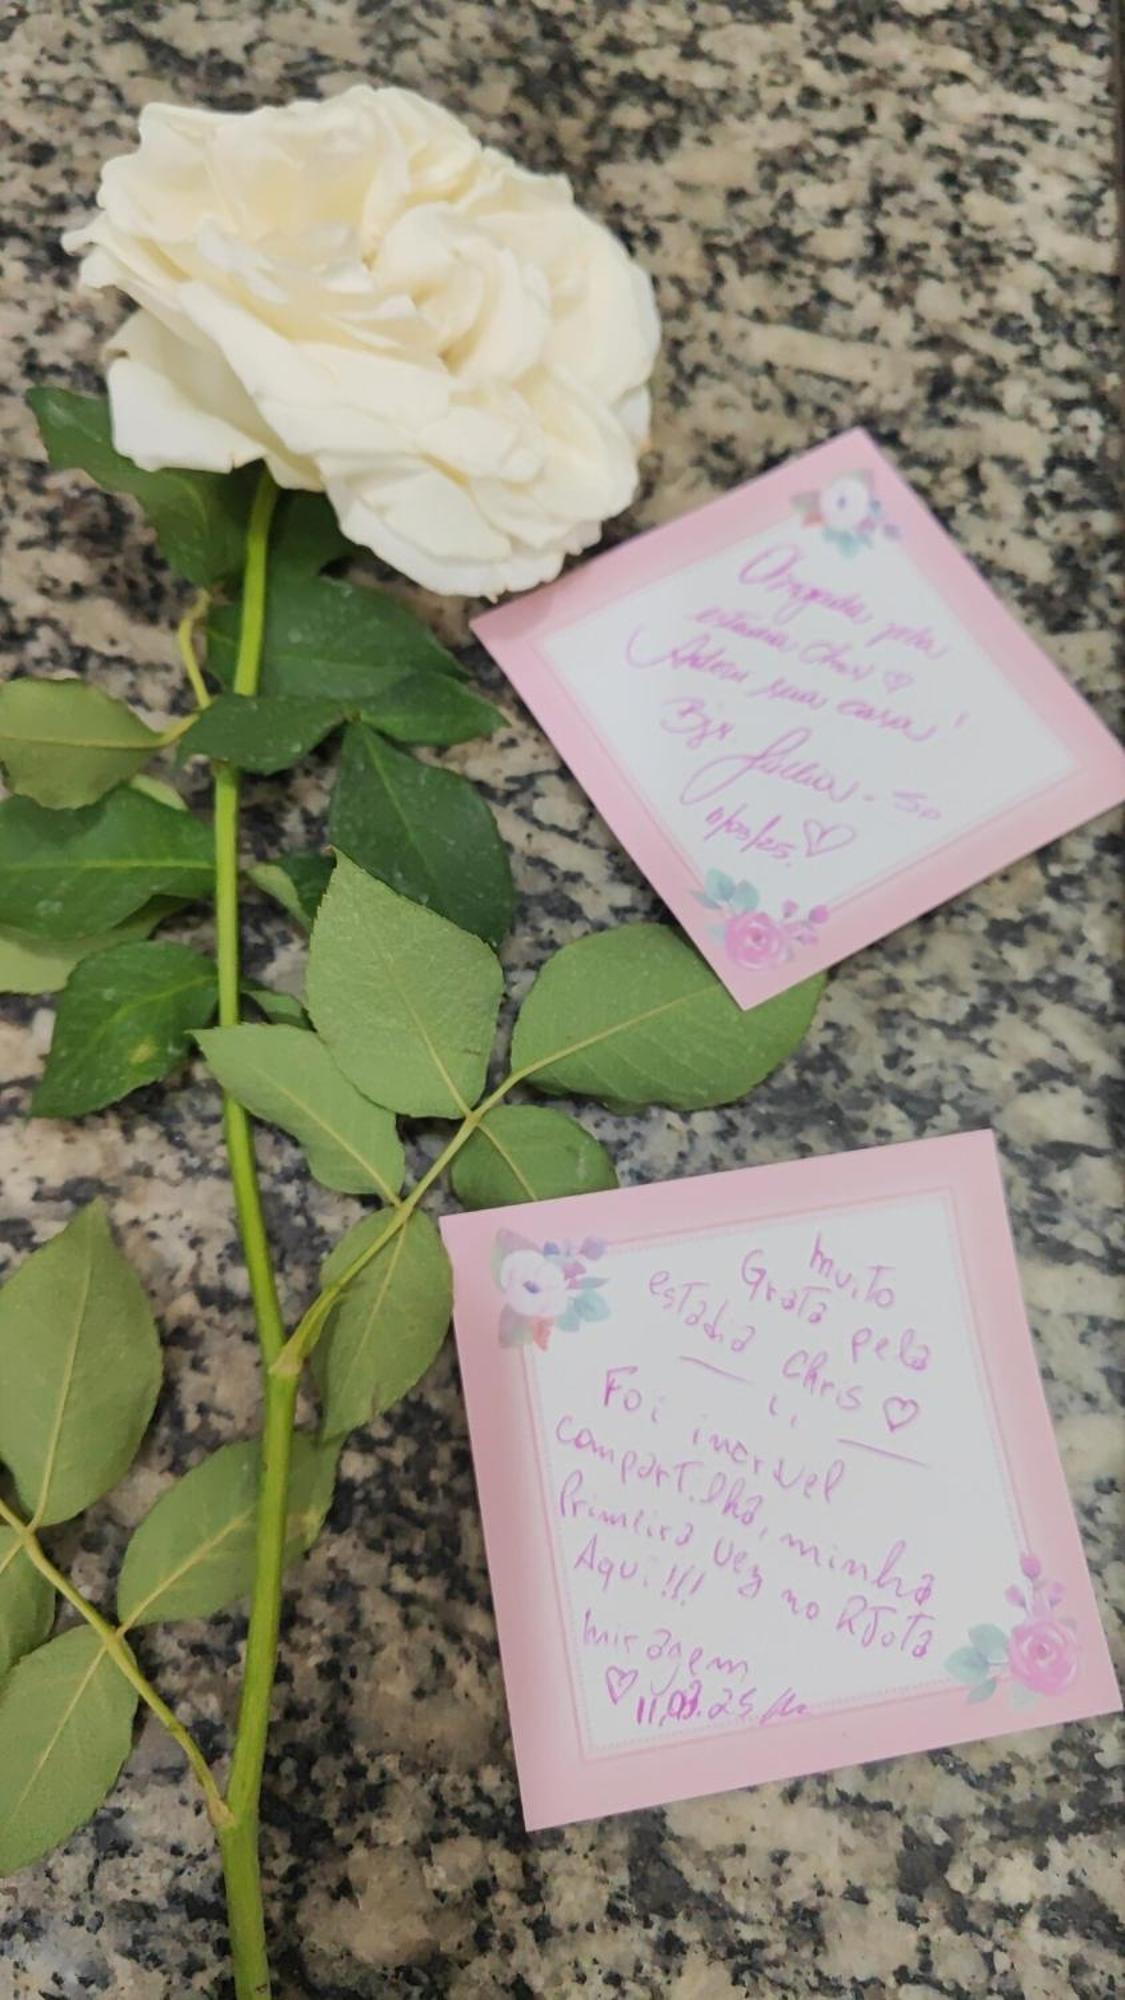 Obrigada, pela
estadia Chris ♡
Adorei sua casa!
Bjs
11/03/25. ♡
Muito
Grata pela
estadia Chris ♡
Foi incrível
compartilha, minha
Primeira vez no RJ
Aqui!!!
Miragem
♡ 11.03.25